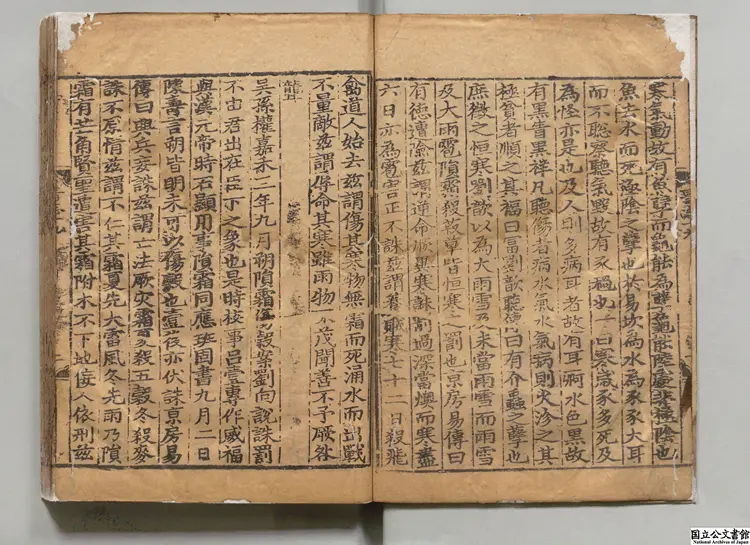 寒氣動故有魚孽而龜能為孽龜能陸處非極陰也
魚去水而死極陰之孽也於易坎為水為豕豕大耳
而不聰察聽氣毀故有豕禍也一曰寒歲豕多死及
為怪亦是也及人則多病耳者故有耳痾水色黑故
有黑眚黑祥凡聽傷者病水氣水氣病則火沴之其
極貧者順之其福曰富劉歆聽傳曰有介蟲孽也
庶徵之恒寒劉歆以為大雨雪及未當雨雪而雨雪
及大雨雹隕霜殺菽草皆恒寒之罰也京房易傳曰
有德遭險茲謂逆命厥異寒誅罰過深當燠而寒盡
六日亦為雹害正不誅茲謂養賊寒七十二日殺飛
禽道人始去茲謂傷其寒物無霜而死涌水而出戰
不量敵茲謂辱命其寒雖雨物不茂聞善不予厥咎
聾
吳孫權嘉禾二年九月朔隕霜傷穀案劉向說誅罰
不由君出在臣下之象也是時校事呂壹專作威福
與漢元帝時石顯用事隕霜同應班固書九月二日
陳壽言朔皆明未可以傷穀也壹後亦伏誅京房易
傳曰興兵妄誅茲謂亡法厥灾霜夏殺五穀冬殺麥
誅不原情茲謂不仁其霜夏先大雷風冬先雨乃隕
霜有芒角賢聖遭害其霜附木不下地佞人依刑茲
国立公文書館
National Archives of Japan